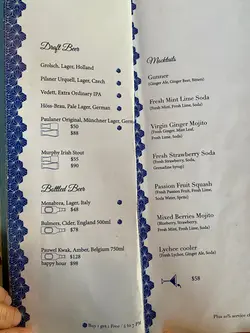 Draft Beer
Grolsch, Lager, Holland
Pilsner Urquell, Lager, Czech
Vedett, Extra Ordinary IPA
Höss-Brau, Pale Lager, German
Paulaner Original, Münchner Lager, German
$50
$88
Murphy Irish Stout
$55
$90
Bottled Beer
Menabrea, Lager, Italy
$48
Bulmers, Cider, England 500ml
$78
Pauwel Kwak, Amber, Belgium 750ml
$128
happy hour $98
Buy 1 get 1 Free
Mocktails
Gunner
(Ginger Ale, Ginger Beer, Bitters)
Fresh Mint Lime Soda
(Fresh Mint, Fresh Lime, Soda)
Virgin Ginger Mojito
(Fresh Ginger, Mint Leaf,
Fresh Lime, Soda)
Fresh Strawberry Soda
(Fresh Strawberry, Soda,
Grenadine Syrup)
Passion Fruit Squash
(Fresh Passion Fruit, Fresh Lime,
Soda Water, Sprite)
Mixed Berries Mojito
(Blueberry, Strawberry,
Fresh Mint, Fresh Lime, Soda)
Lychee cooler
(Fresh Lychee, Ginger Ale, Soda)
$58
Plus 10% service